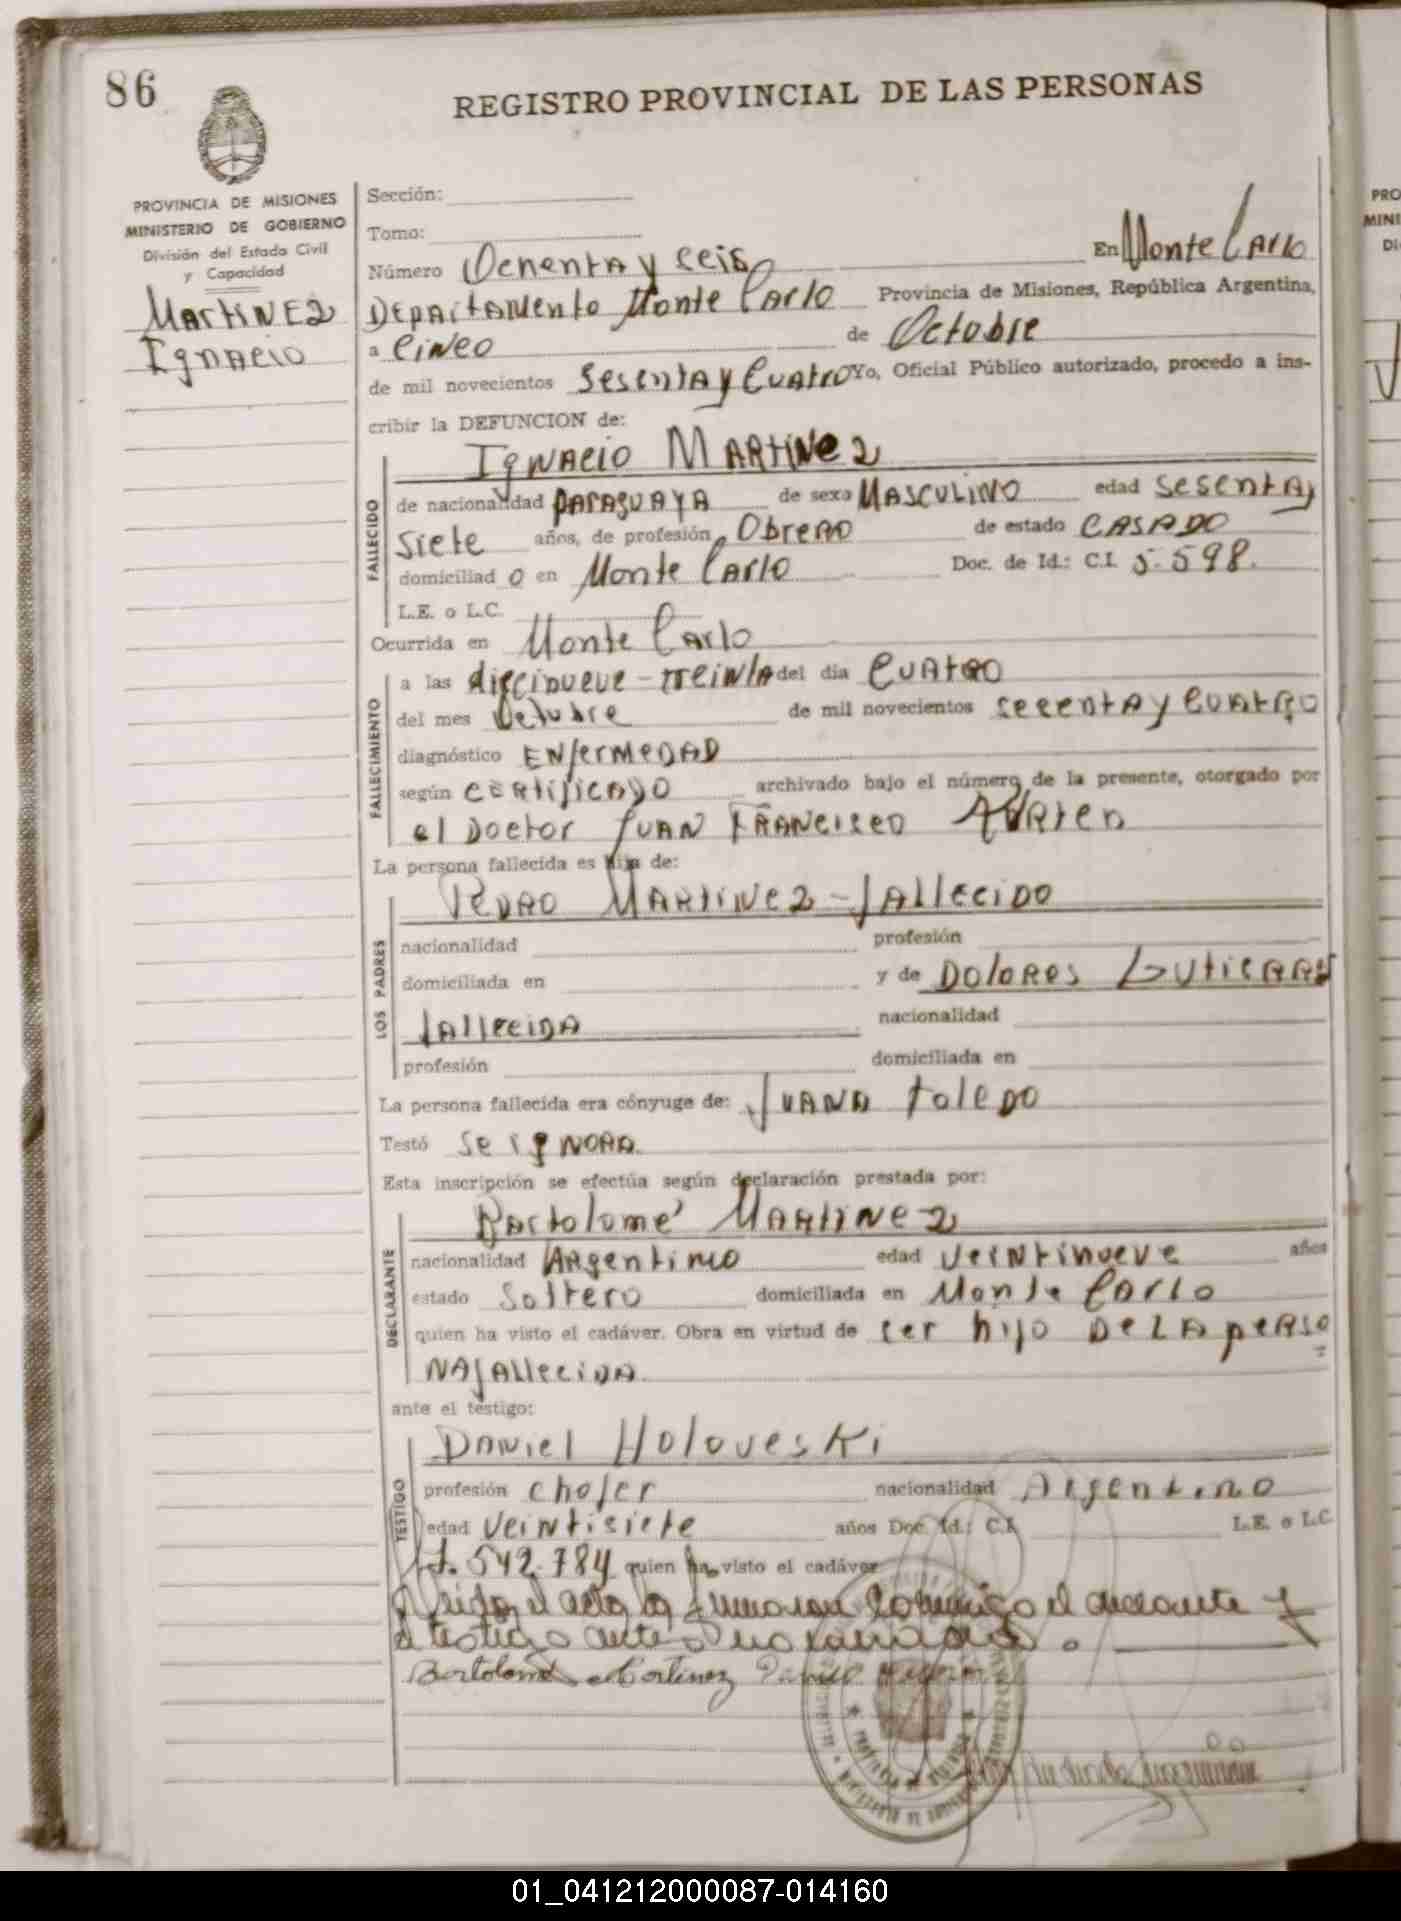 86
REGISTRO PROVINCIAL DE LAS PERSONAS
PROVINCIA DE MISIONES
MINISTERIO DE GOBIERNO
División del Estado Civil
y Capacidad
Martinez
Ignacio
Sección:
Tomo:
Número Ochenta y seis En Monte Carlo
Departamento Monte Carlo Provincia de Misiones, República Argentina,
a cinco de Octubre
de mil novecientos sesenta y cuatro Yo, Oficial Público autorizado, procedo a ins-
cribir la DEFUNCION de:
Ignacio Martinez
FALLECIDO
de nacionalidad paraguaya de sexo Masculino edad sesenta y
siete años, de profesión Obrero de estado casado
domiciliad o en Monte Carlo Doc. de Id.: C.I. 5.598.
L.E. o L.C.
Ocurrida en Monte Carlo
FALLECIMIENTO
a las diecinueve - treinta del día cuatro
del mes Octubre de mil novecientos sesenta y cuatro
diagnóstico Enfermedad
según certificado archivado bajo el número de la presente, otorgado por
el Doctor Juan Francisco
La persona fallecida es hija de:
LOS PADRES
Pedro Martinez - fallecido
nacionalidad profesión
domiciliada en y de Dolores Gutierrez
fallecida nacionalidad
profesión domiciliada en
La persona fallecida era cónyuge de: Juana Toledo
Testó se ignora
Esta inscripción se efectúa según declaración prestada por:
DECLARANTE
Bartolomé Martinez
nacionalidad Argentino edad veintinueve años
estado Soltero domiciliada en Monte Carlo
quien ha visto el cadáver. Obra en virtud de ser hijo de la perso
na fallecida
ante el testigo:
TESTIGO
Daniel Holoveski
profesión chofer nacionalidad Argentino
edad veintisiete años Doc. Id.: C.I. L.E. o L.C.
542.784 quien ha visto el cadáver
el acta la conmigo el y
el testigo ante
Bartolomé Martinez
PROVINCIA DE MISIONES
01_041212000087-014160